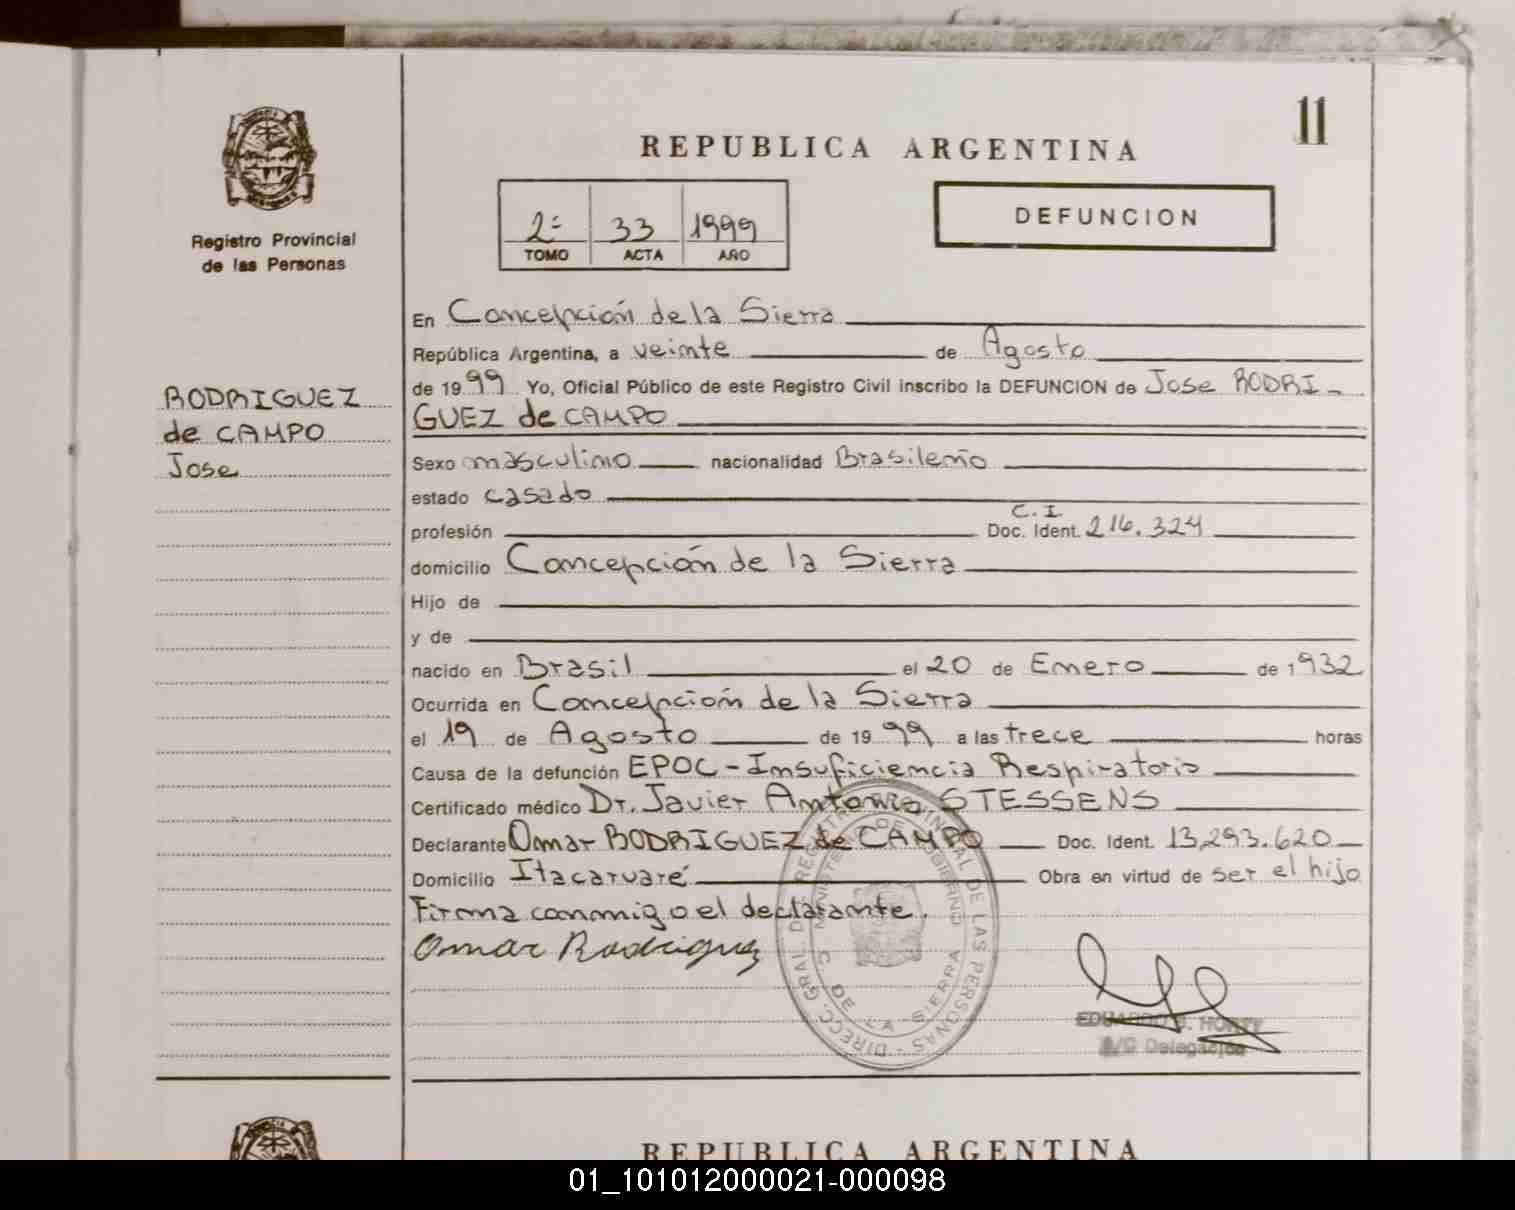 11
REPUBLICA ARGENTINA
Registro Provincial
de las Personas
2º 33 1999
TOMO ACTA AÑO
DEFUNCION
RODRIGUEZ
de CAMPO
Jose
En Concepción de la Sierra
República Argentina, a veinte de Agosto
de 1999 Yo, Oficial Público de este Registro Civil inscribo la DEFUNCION de Jose RODRI-
GUEZ de CAMPO
Sexo masculino nacionalidad Brasileño
estado casado
C.I.
profesión Doc. Ident. 216.324
domicilio Concepción de la Sierra
Hijo de
y de
nacido en Brasil el 20 de Enero de 1932
Ocurrida en Concepción de la Sierra
el 19 de Agosto de 1999 a las trece horas
Causa de la defunción EPOC - Insuficiencia Respiratoria
Certificado médico Dr. Javier Antonio STESSENS
Declarante Omar RODRIGUEZ de CAMPO Doc. Ident. 13,293.620
Domicilio Itacaruaré Obra en virtud de ser el hijo
Firma conmigo el declarante.
Omar Rodriguez
DIRECC. GRAL. DEL REGISTRO PROVINCIAL DE LAS PERSONAS
MINISTERIO DE GOBIERNO
C. DE LA SIERRA
EDUARDO HORTY
Delegación
REPUBLICA ARGENTINA
01_101012000021-000098